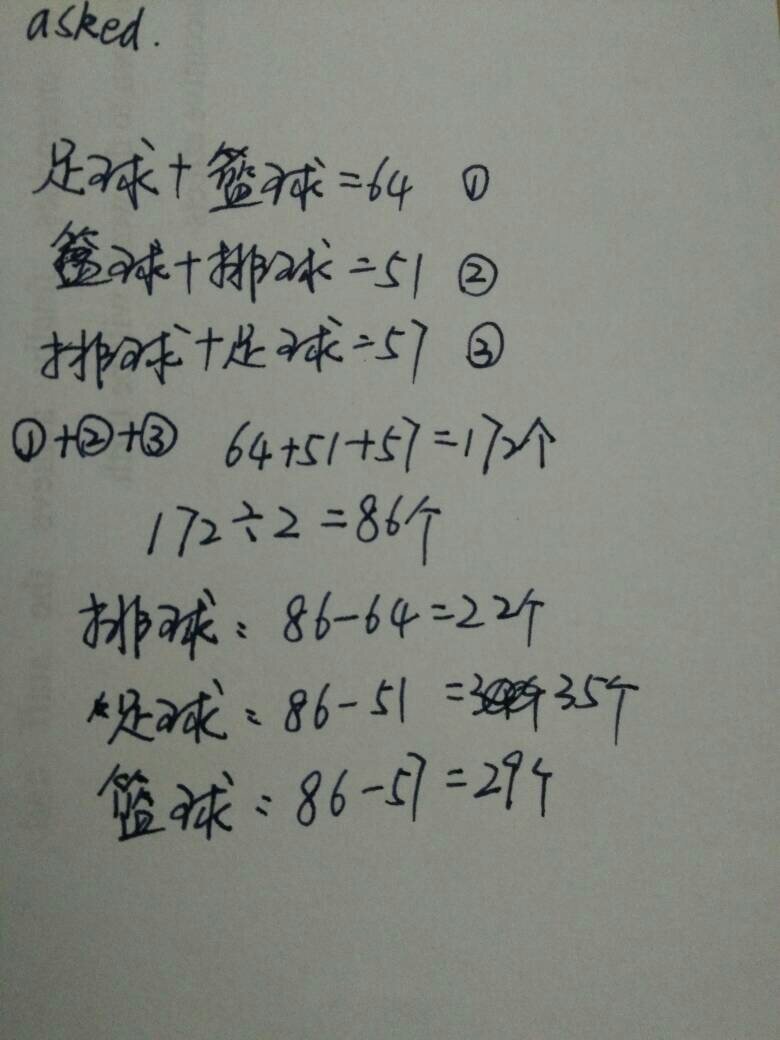 asked.
足球+篮球=64 ①
篮球+排球=51 ②
排球+足球=57 ③
①+②+③ 64+51+57=172个
172÷2=86个
排球：86-64=22个
足球：86-51=35个
篮球：86-57=29个